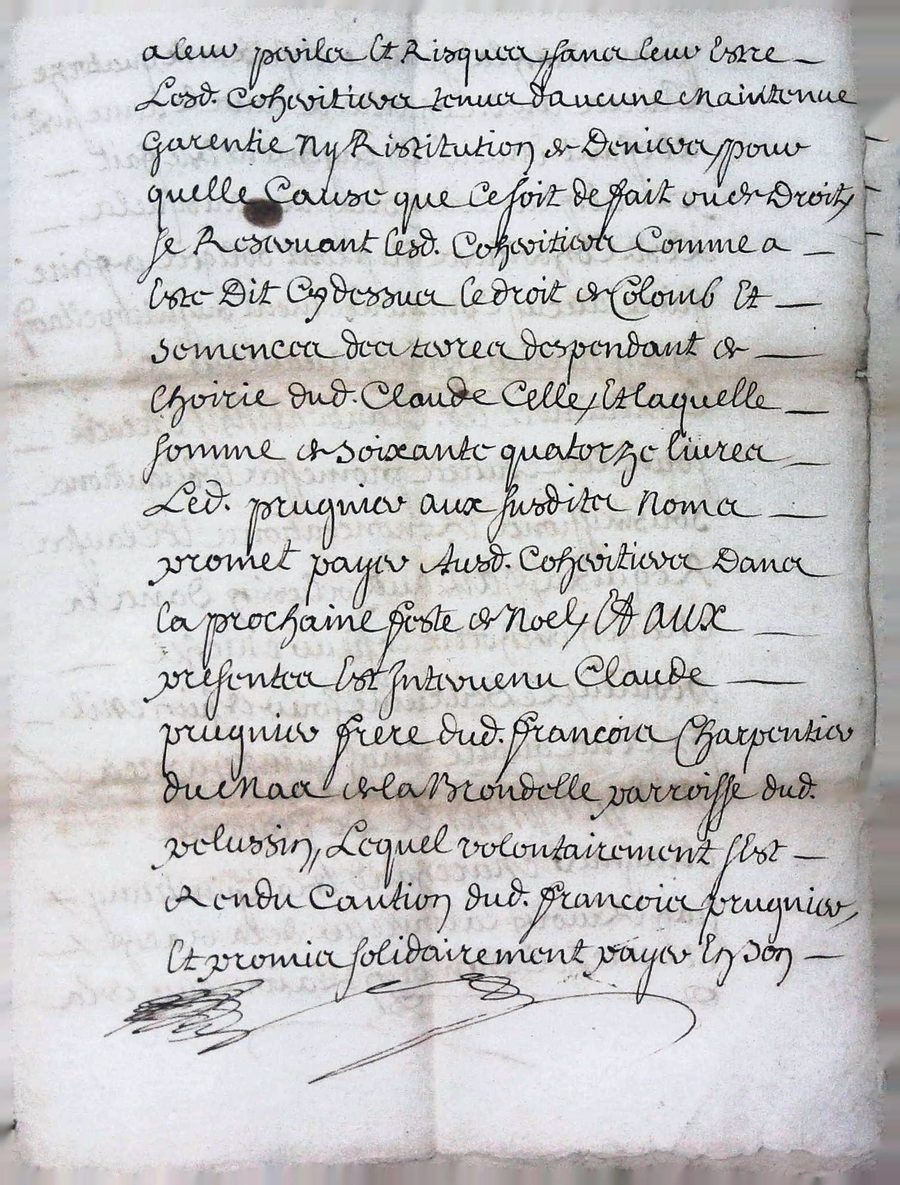 a leur perils Et Risques, sans leur Estre
Lesd. Coheritiers tenus daucune Maintenue
Garentie Ny Ristitution de Deniers, pour
quelle Cause que Ce soit de fait ou de Droit,
se Reservant lesd. Coheritiers Comme a
Esté Dit Cydessus le droit de Colomb Et
semences des terres despendant de
Lhoirie dud. Claude Celle, Et laquelle
somme de soixante quatorze livres
Led. prugnier aux susdits Noms
promet payer Ausd. Coheritiers Dans
la prochaine feste de Noel, Et aux
presentes Est Intervenu Claude
prugnier frere dud. francois Charpentier
du Mas de la Brondelle parroisse dud.
pelussin, Lequel volontairement sest
Rendu Caution dud. francois prugnier,
Et promis solidairement payer En son